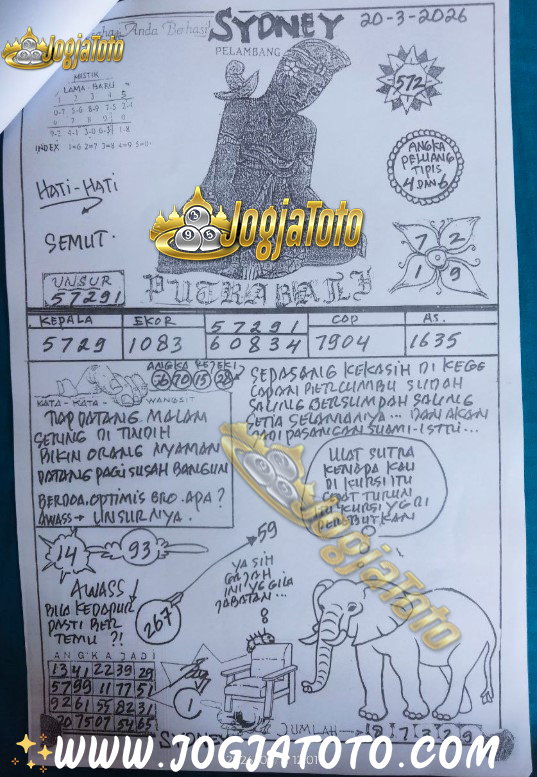 Anda Berhasil
SYDNEY
20-3-2026
JogjaToto
PELAMBANG
MISTIK
LAMA - BARU
1 2 3 4 5
6 7 8 9
INDEX 1=6 2=7 3=8 4=9 5=0
572
ANGKA
PELUANG
TIPIS
4 DAN 6
HATI-HATI
SEMUT.
JogjaToto
7 2
1 9
UNSUR
57291
PUTRA BALI
KEPALA
EKOR
57291
COP
AS.
5729
1083
60834
7904
1635
ANGKA
15
28
KATA - KATA - WANGSIT
TIAP DATANG MALAM
SERING DI TINDIH
BIKIN ORANG NYAMAN
DATANG PAGI SUSAH BANGUN
BERDOA.OPTIMIS BRO.APA?
AWASS→ UNSURNYA.
SEPASANG KEKASIH DI KEGE
LAPAN BERCUMBU SUDAH
SALING BERSUMPAH SALING
SETIA SELAMANYA... DAN AKAN
JADI PASANGAN SUAMI-ISTRI...
ULAT SUTRA
KENAPA KAU
DI KURSI ITU
CEPAT TURUN
KURSI YG DI
PEREBUTKAN
JogjaToto
14
93
59
267
AWASS
BILA KEDAPUR
PASTI BER
TEMU ?!
YA SIH
GAJAH
INI YG GILA
JABATAN...
8
ANGKA JADI
13 41 22 39 29
57 99 11 77 51
92 61 55 82 31
20 75 07 54 65
1
JUMLAH
WWW.JOGJATOTO.COM